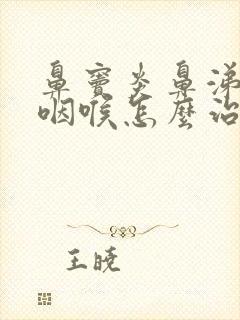 鼻窦炎鼻涕
咽喉怎麼治
王晓